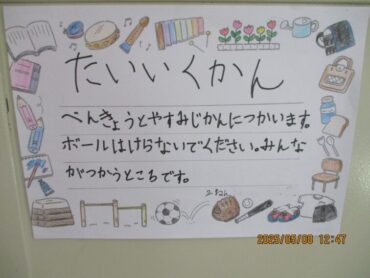 たいいくかん
べんきょうとやすみじかんにつかいます。
ボールはけらないでください。みんな
がつかうところです。
2025/05/08 12:47